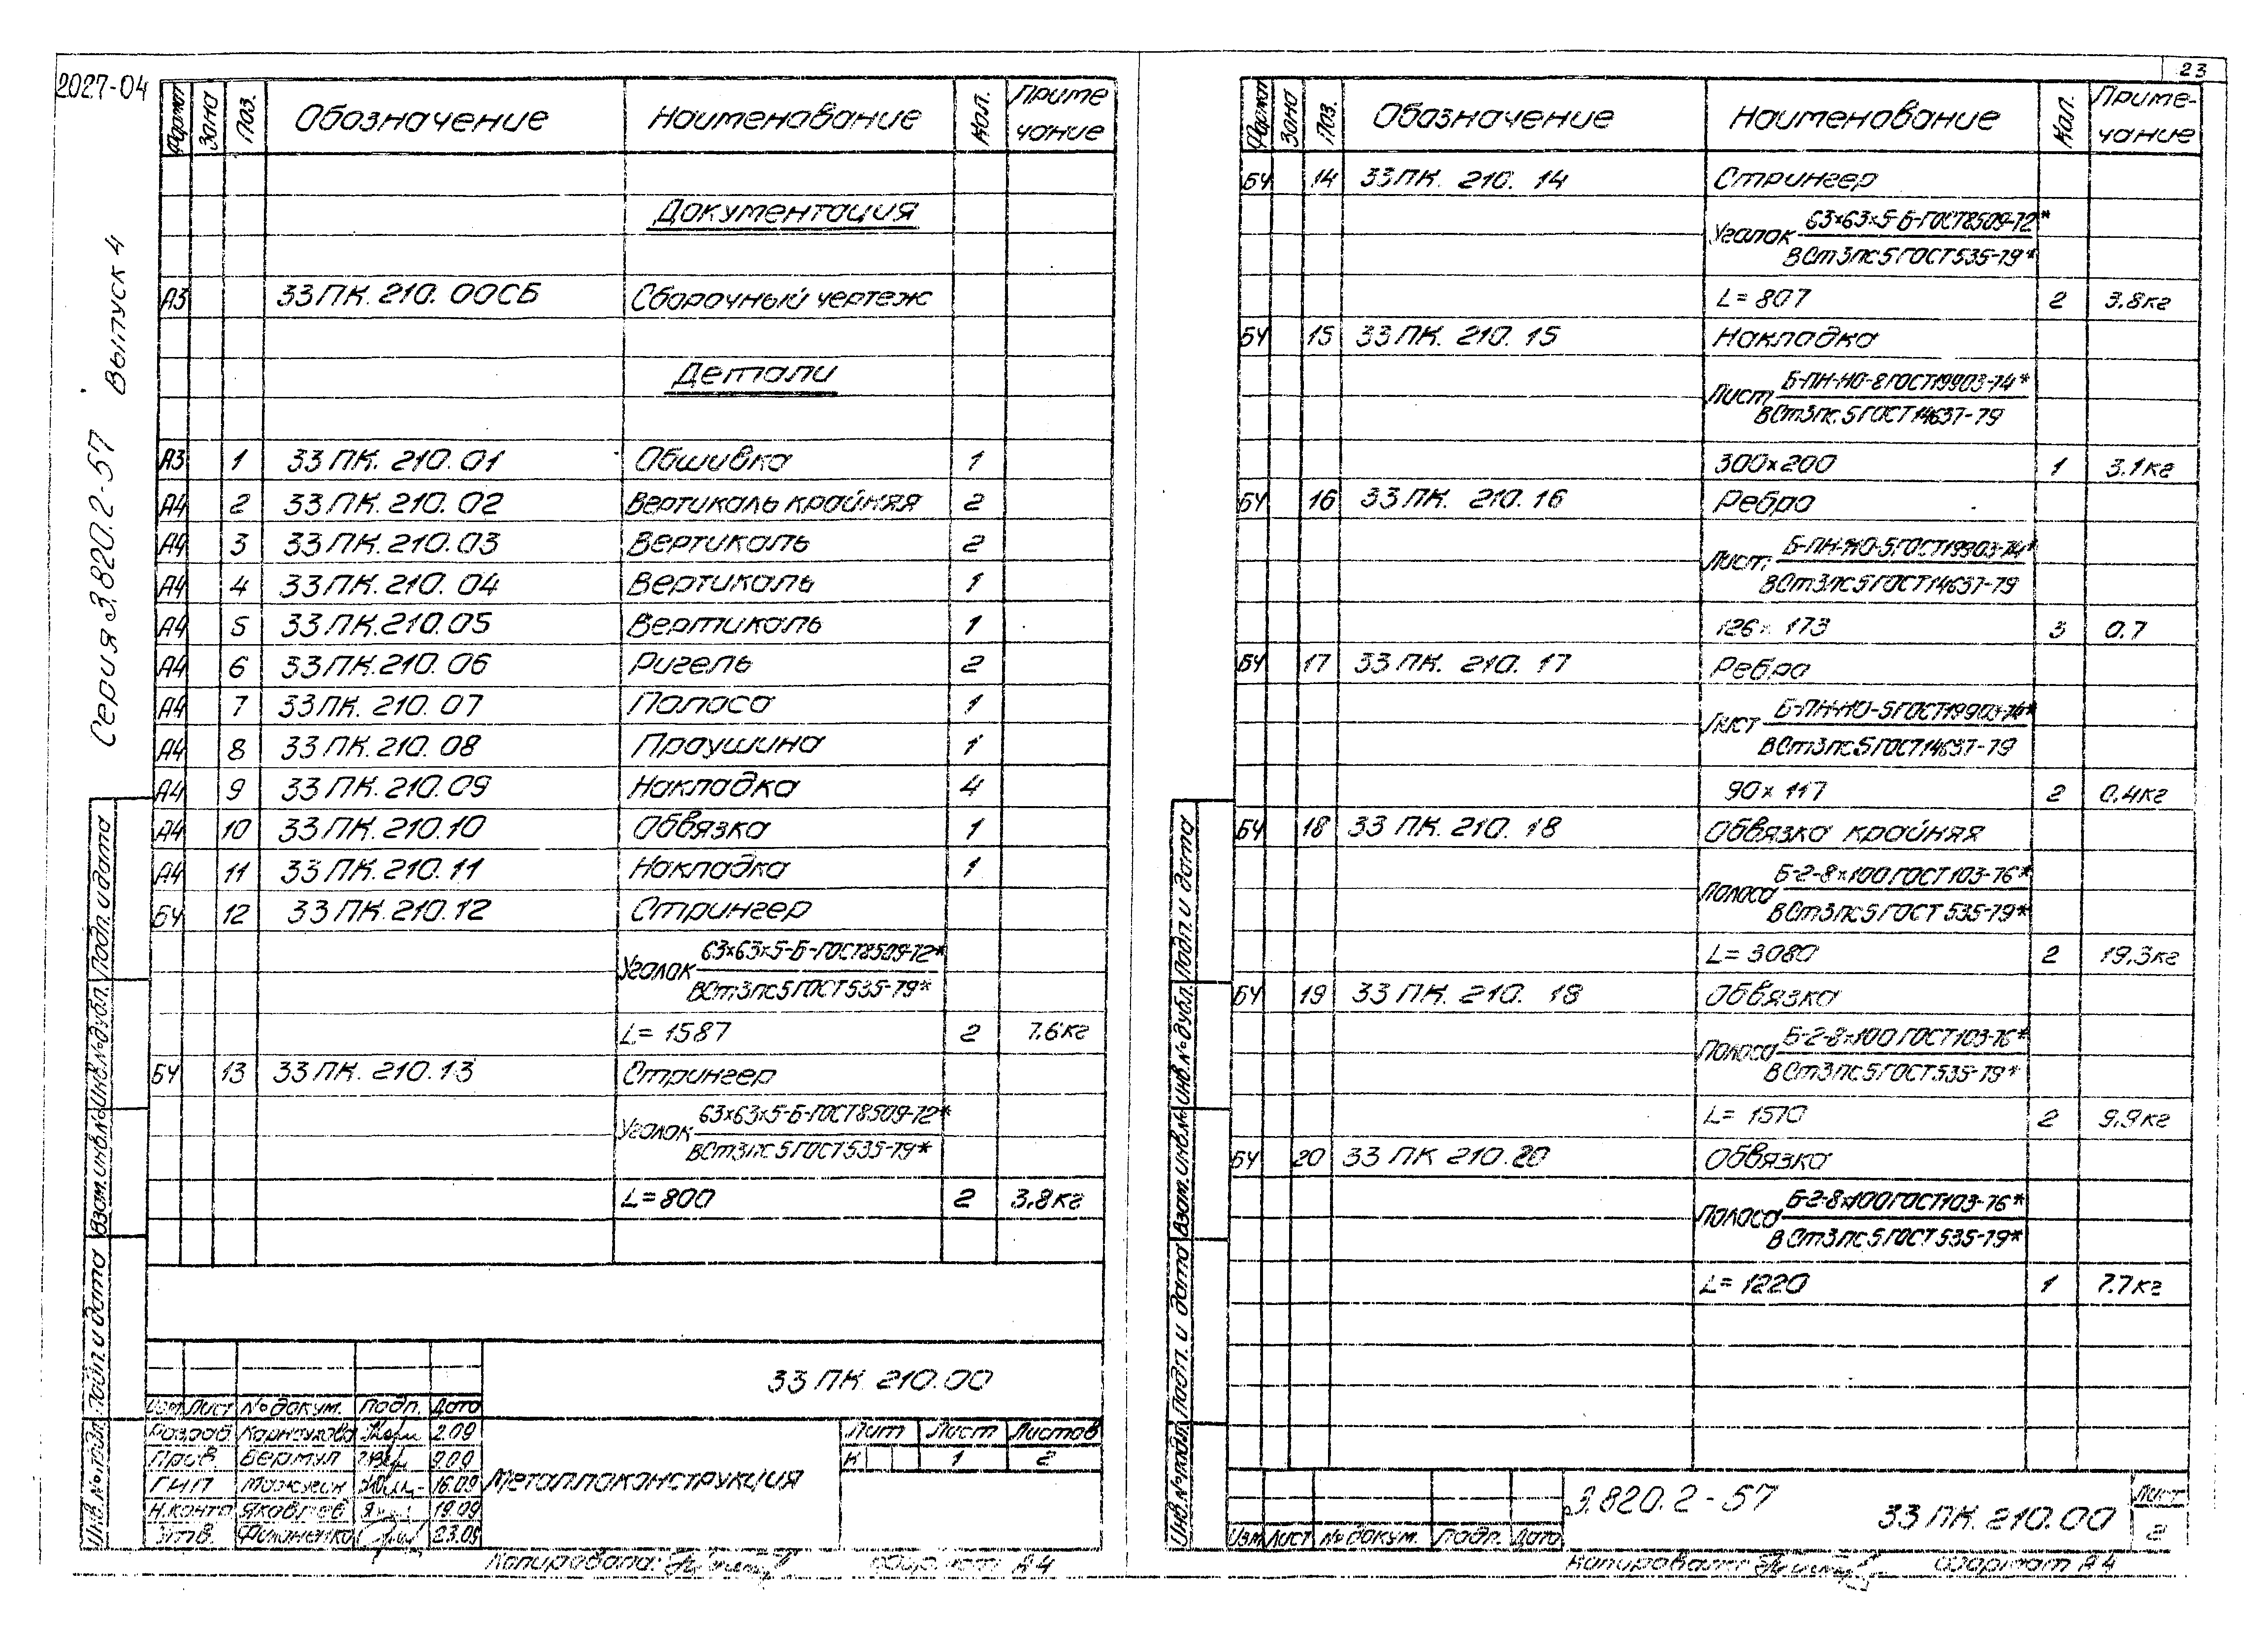 2027-04
Серия 3.820.2-57 Выпуск 4
Формат Зона Поз. Обозначение Наименование Кол. Приме
чание
Документация
А3 33ПК.210.00СБ Сборочный чертеж
Детали
А3 1 33ПК.210.01 Обшивка 1
А4 2 33ПК.210.02 Вертикаль крайняя 2
А4 3 33ПК.210.03 Вертикаль 2
А4 4 33ПК.210.04 Вертикаль 1
А4 5 33ПК.210.05 Вертикаль 1
А4 6 33ПК.210.06 Ригель 2
А4 7 33ПК.210.07 Полоса 1
А4 8 33ПК.210.08 Проушина 1
А4 9 33ПК.210.09 Накладка 4
А4 10 33ПК.210.10 Обвязка 1
А4 11 33ПК.210.11 Накладка 1
БЧ 12 33ПК.210.12 Стрингер
63х63х5-Б-ГОСТ8509-72*
Уголок
ВСт3пс5ГОСТ535-79*
L=1587 2 7.6кг
БЧ 13 33ПК.210.13 Стрингер
63х63х5-Б-ГОСТ8509-72*
Уголок
ВСт3пс5ГОСТ535-79*
L=800 2 3.8кг
Инв.№подл. Подп. и дата Взам.инв.№ Инв.№дубл. Подп. и дата
33ПК.210.00
Изм. Лист №докум. Подп. Дата
Разраб 2.09
Пров. Вермул 9.09
ГИП 16.09
Н.контр Яковлев 19.09
Утв. Филоненко 23.09
Металлоконструкция
Лит Лист Листов
К 1 2
Копировала: формат А4
23
Формат Зона Поз. Обозначение Наименование Кол. Приме-
чание
БЧ 14 33ПК.210.14 Стрингер
63х63х5-Б-ГОСТ8509-72*
Уголок
ВСт3пс5ГОСТ535-79*
L=807 2 3.8кг
БЧ 15 33ПК.210.15 Накладка
Б-ПН-НО-8ГОСТ19903-74*
Лист
ВСт3пс5ГОСТ14637-79
300х200 1 3.1кг
БЧ 16 33ПК.210.16 Ребро
Б-ПН-НО-5ГОСТ19903-74*
Лист
ВСт3пс5ГОСТ14637-79
126х173 3 0.7
БЧ 17 33ПК.210.17 Ребро
Б-ПН-НО-5ГОСТ19903-74*
Лист
ВСт3пс5ГОСТ14637-79
90х117 2 0.4кг
БЧ 18 33ПК.210.18 Обвязка крайняя
Б-2-8х100ГОСТ103-76*
Полоса
ВСт3пс5ГОСТ535-79*
L=3080 2 19.3кг
БЧ 19 33ПК.210.18 Обвязка
Б-2-8х100ГОСТ103-76*
Полоса
ВСт3пс5ГОСТ535-79*
L=1570 2 9.9кг
БЧ 20 33ПК 210.20 Обвязка
Б-2-8х100ГОСТ103-76*
Полоса
ВСт3пс5ГОСТ535-79*
L=1220 1 7.7кг
Инв.№подл. Подп. и дата Взам.инв.№ Инв.№дубл. Подп. и дата
Изм Лист №докум. Подп. Дата
3.820.2-57 33ПК.210.00
Лист
2
Копировала: формат А4